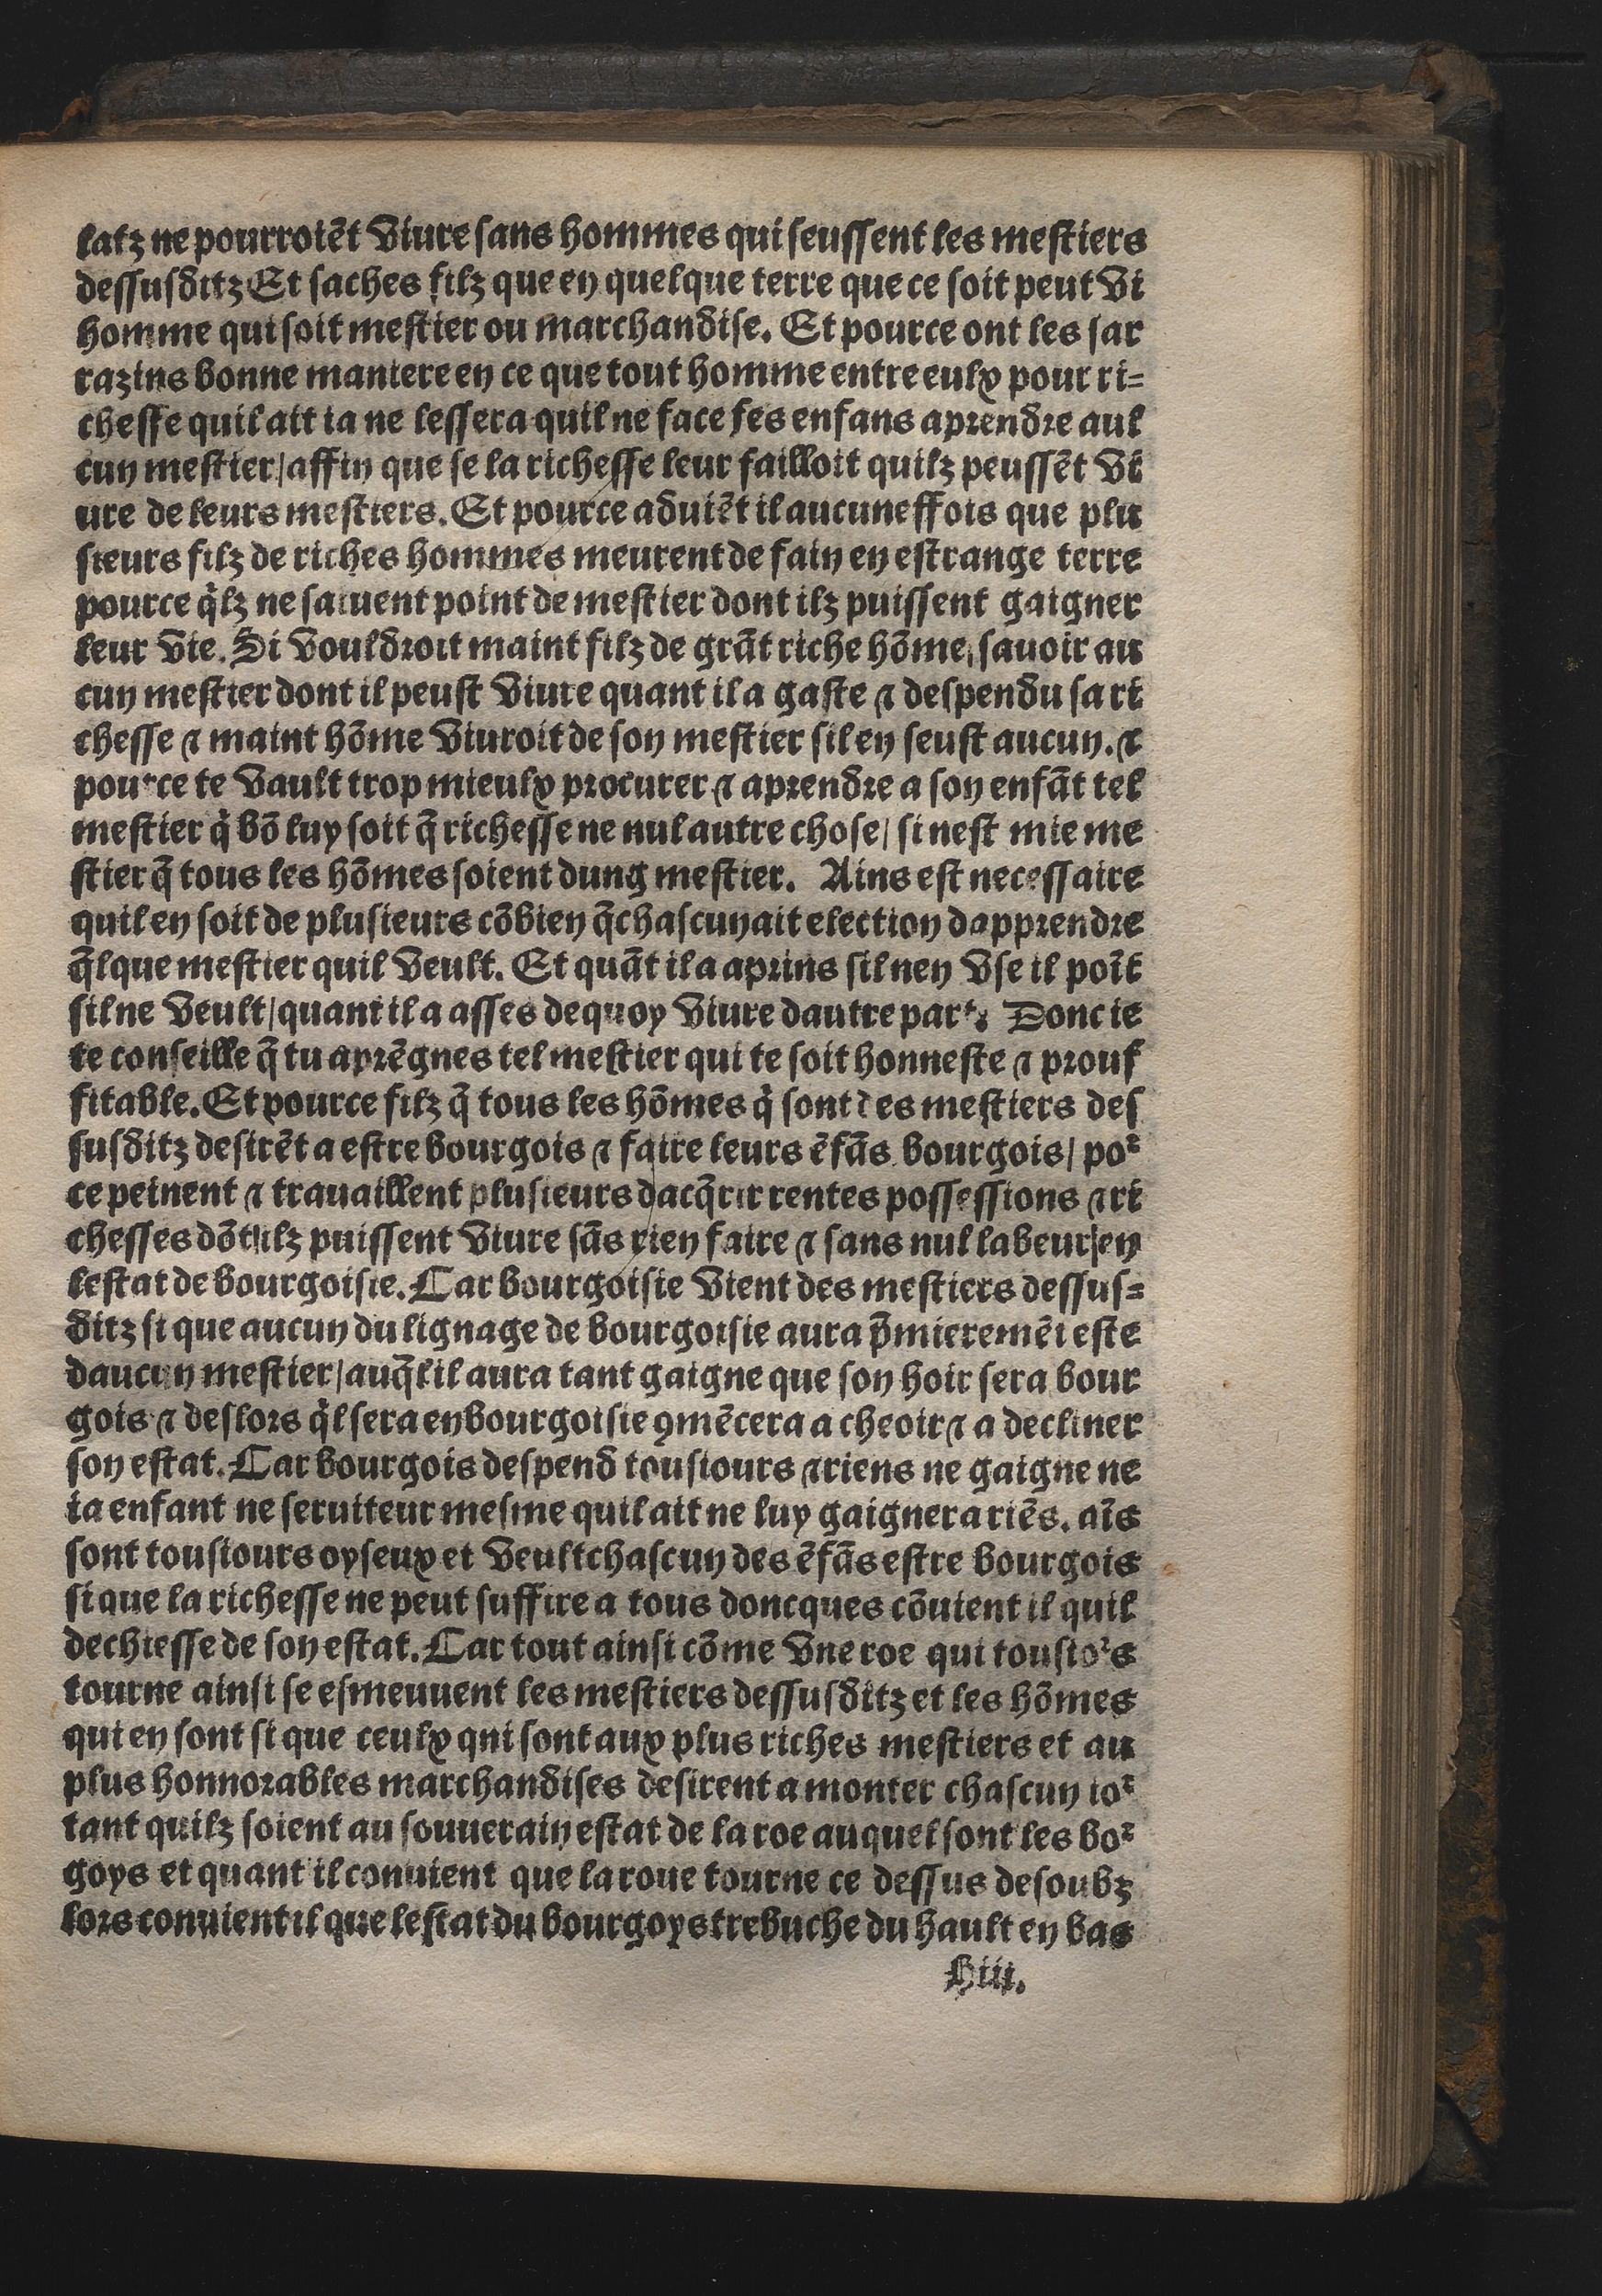 latz ne pourroiēt viure sans hommes qui seussent les mestiers
dessusditz Et saches filz que en quelque terre que ce soit peut vi
homme qui soit mestier ou marchandise. Et pource ont les sar
razins bonne maniere en ce que tout homme entre eulx pour ri=
chesse quil ait ia ne lessera quil ne face ses enfans aprendre aul
cun mestier/affin que se la richesse leur failloit quilz peussēt vi
ure de leurs mestiers. Et pource aduiēt il aucuneffois que plu
sieurs filz de riches hommes meurent de fain en estrange terre
pource q̇lz ne sauent point de mestier dont ilz puissent gaigner
leur vie. Si vouldroit maint filz de grāt riche hōme, sauoir au
cun mestier dont il peust viure quant il a gaste ⁊ despendu sa ri
chesse ⁊ maint hōme viuroit de son mestier sil en seust aucun. ⁊
pource te vault trop mieulx procurer ⁊ aprendre a son enfāt tel
mestier q̇ bō luy soit q̄ richesse ne nul autre chose/ si nest mie me
stier q̄ tous les hōmes soient dung mestier. Ains est necessaire
quil en soit de plusieurs cōbien q̄ chascun ait election dapprendre
q̄lque mestier quil veult. Et quāt il a aprins sil nen vse il poīt
sil ne veult/quant il a asses dequoy viure dautre part. Donc ie
te conseille q̄ tu aprēgnes tel mestier qui te soit honneste ⁊ prouf
fitable. Et pource filz q̄ tous les hōmes q̇ sont des mestiers des
susditz desirēt a estre bourgois ⁊ faire leurs ēfās bourgois/ poꝛ
ce peinent ⁊ trauaillent plusieurs dacq̄rir rentes possessions ⁊ ri
chesses dōt ilz puissent viure sās rien faire ⁊ sans nul labeur/en
lestat de bourgoisie. Car bourgoisie vient des mestiers dessus=
ditz si que aucun du lignage de bourgoisie aura p̄mieremēt este
daucun mestier/auq̄l il aura tant gaigne que son hoir sera bour
gois ⁊ deslors q̇l sera en bourgoisie ꝯmēcera a cheoir ⁊ a decliner
son estat. Car bourgois despend tousiours ⁊ riens ne gaigne ne
ia enfant ne seruiteur mesme quil ait ne luy gaignera riēs. aīs
sont tousiours oyseux et veult chascun des ēfās estre bourgois
si que la richesse ne peut suffire a tous doncques cōuient il quil
dechiesse de son estat. Car tout ainsi cōme vne roe qui tousioꝛs
tourne ainsi se esmeuuent les mestiers dessusditz et les hōmes
qui en sont si que ceulx qni sont aux plus riches mestiers et au
plus honnorables marchandises desirent a monter chascun ioꝛ
tant quilz soient au souuerain estat de la roe auquel sont les boꝛ
goys et quant il conuient que la roue tourne ce dessus desoubz
lors conuient il que lestat du bourgoys trebuche du hault en bas
hiii.